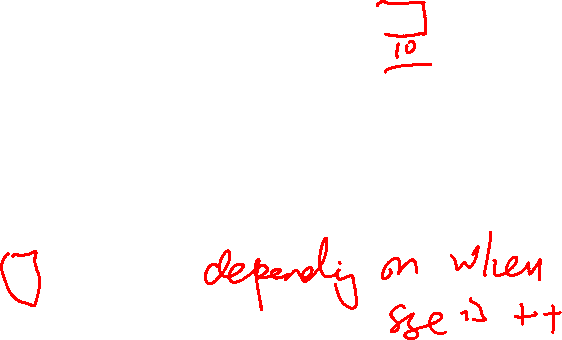 10
depending on when
size is ++